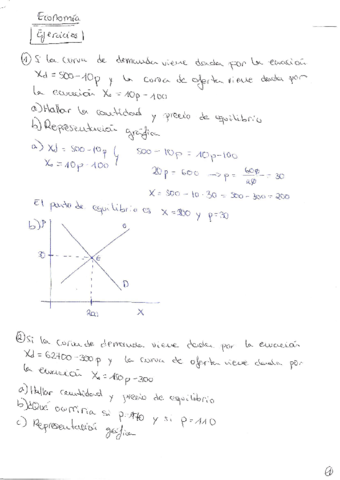 Economía
Ejercicios
① Si la curva de demanda viene dada por la ecuación
Xd = 500 - 10p y la curva de oferta viene dada por
la ecuación Xo = 10p - 100
a) Hallar la cantidad y precio de equilibrio
b) Representación gráfica
a) Xd = 500 - 10p } 500 - 10p = 10p - 100
Xo = 10p - 100 20p = 600 → p = 600/20 = 30
X = 500 - 10·30 = 500 - 300 = 200
El punto de equilibrio es X = 200 y p = 30
b) P
O
30
e
D
200 X
② Si la curva de demanda viene dada por la ecuación
Xd = 62100 - 300p y la curva de oferta viene dada por
la ecuación Xo = p - 300
a) Hallar cantidad y precio de equilibrio
b) ¿Qué ocurriría si p = y si p = 110
c) Representación gráfica
①